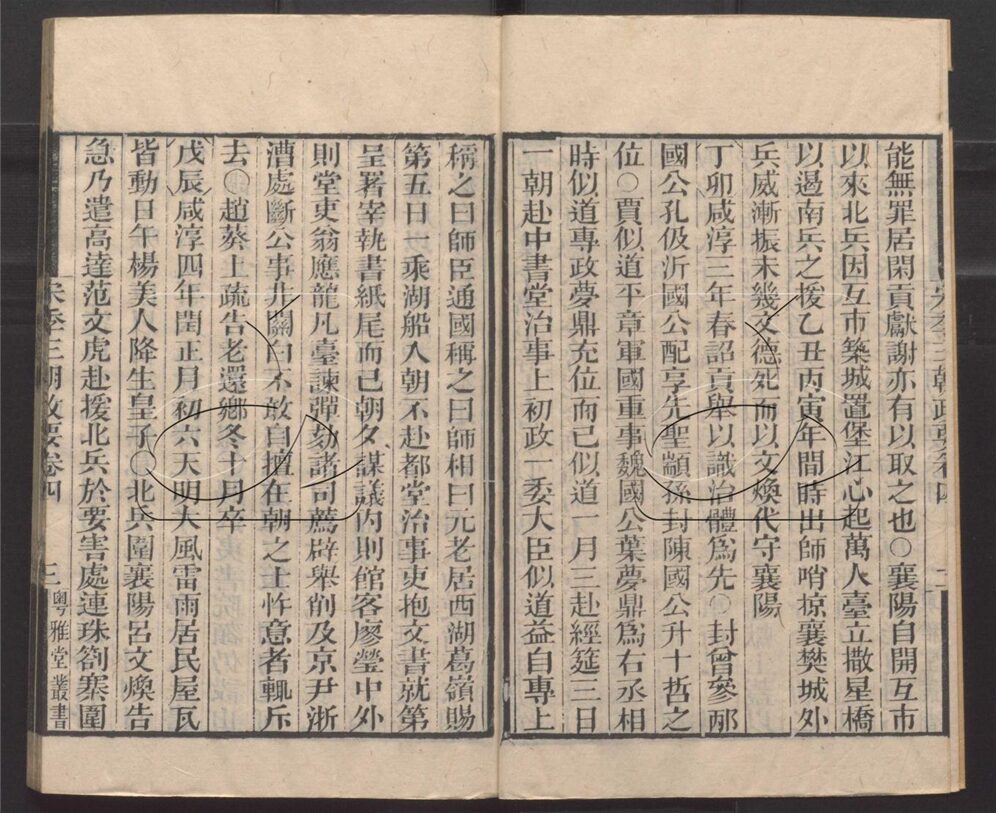 能無罪居閑貢獻謝亦有以取之也○襄陽自開互市
以來北兵因互市築城置堡江心起萬人臺立撒星橋
以遏南兵之援乙丑丙寅年間時出師哨掠襄樊城外
兵威漸振未幾文德死而以文煥代守襄陽
丁卯咸淳三年春詔貢舉以識治體爲先○封曾參郕
國公孔伋沂國公配享先聖顓孫封陳國公升十哲之
位○賈似道平章軍國重事魏國公葉夢鼎爲右丞相
時似道專政夢鼎充位而已似道一月三赴經筵三日
一朝赴中書堂治事上初政一委大臣似道益自專上
稱之曰師臣通國稱之曰師相曰元老居西湖葛嶺賜
第五日一乘湖船入朝不赴都堂治事吏抱文書就第
呈署宰執書紙尾而已朝夕謀議內則館客廖瑩中外
則堂吏翁應龍凡臺諫彈劾諸司薦辟舉削及京尹浙
漕處斷公事非關白不敢自擅在朝之士忤意者輒斥
去○趙葵上疏告老還鄉冬十月卒
戊辰咸淳四年閏正月初六天明大風雷雨居民屋瓦
皆動日午楊美人降生皇子○北兵圍襄陽呂文煥告
急乃遣高達范文虎赴援北兵於要害處連珠劄寨圍
宋季三朝政要卷四 三 粵雅堂叢書